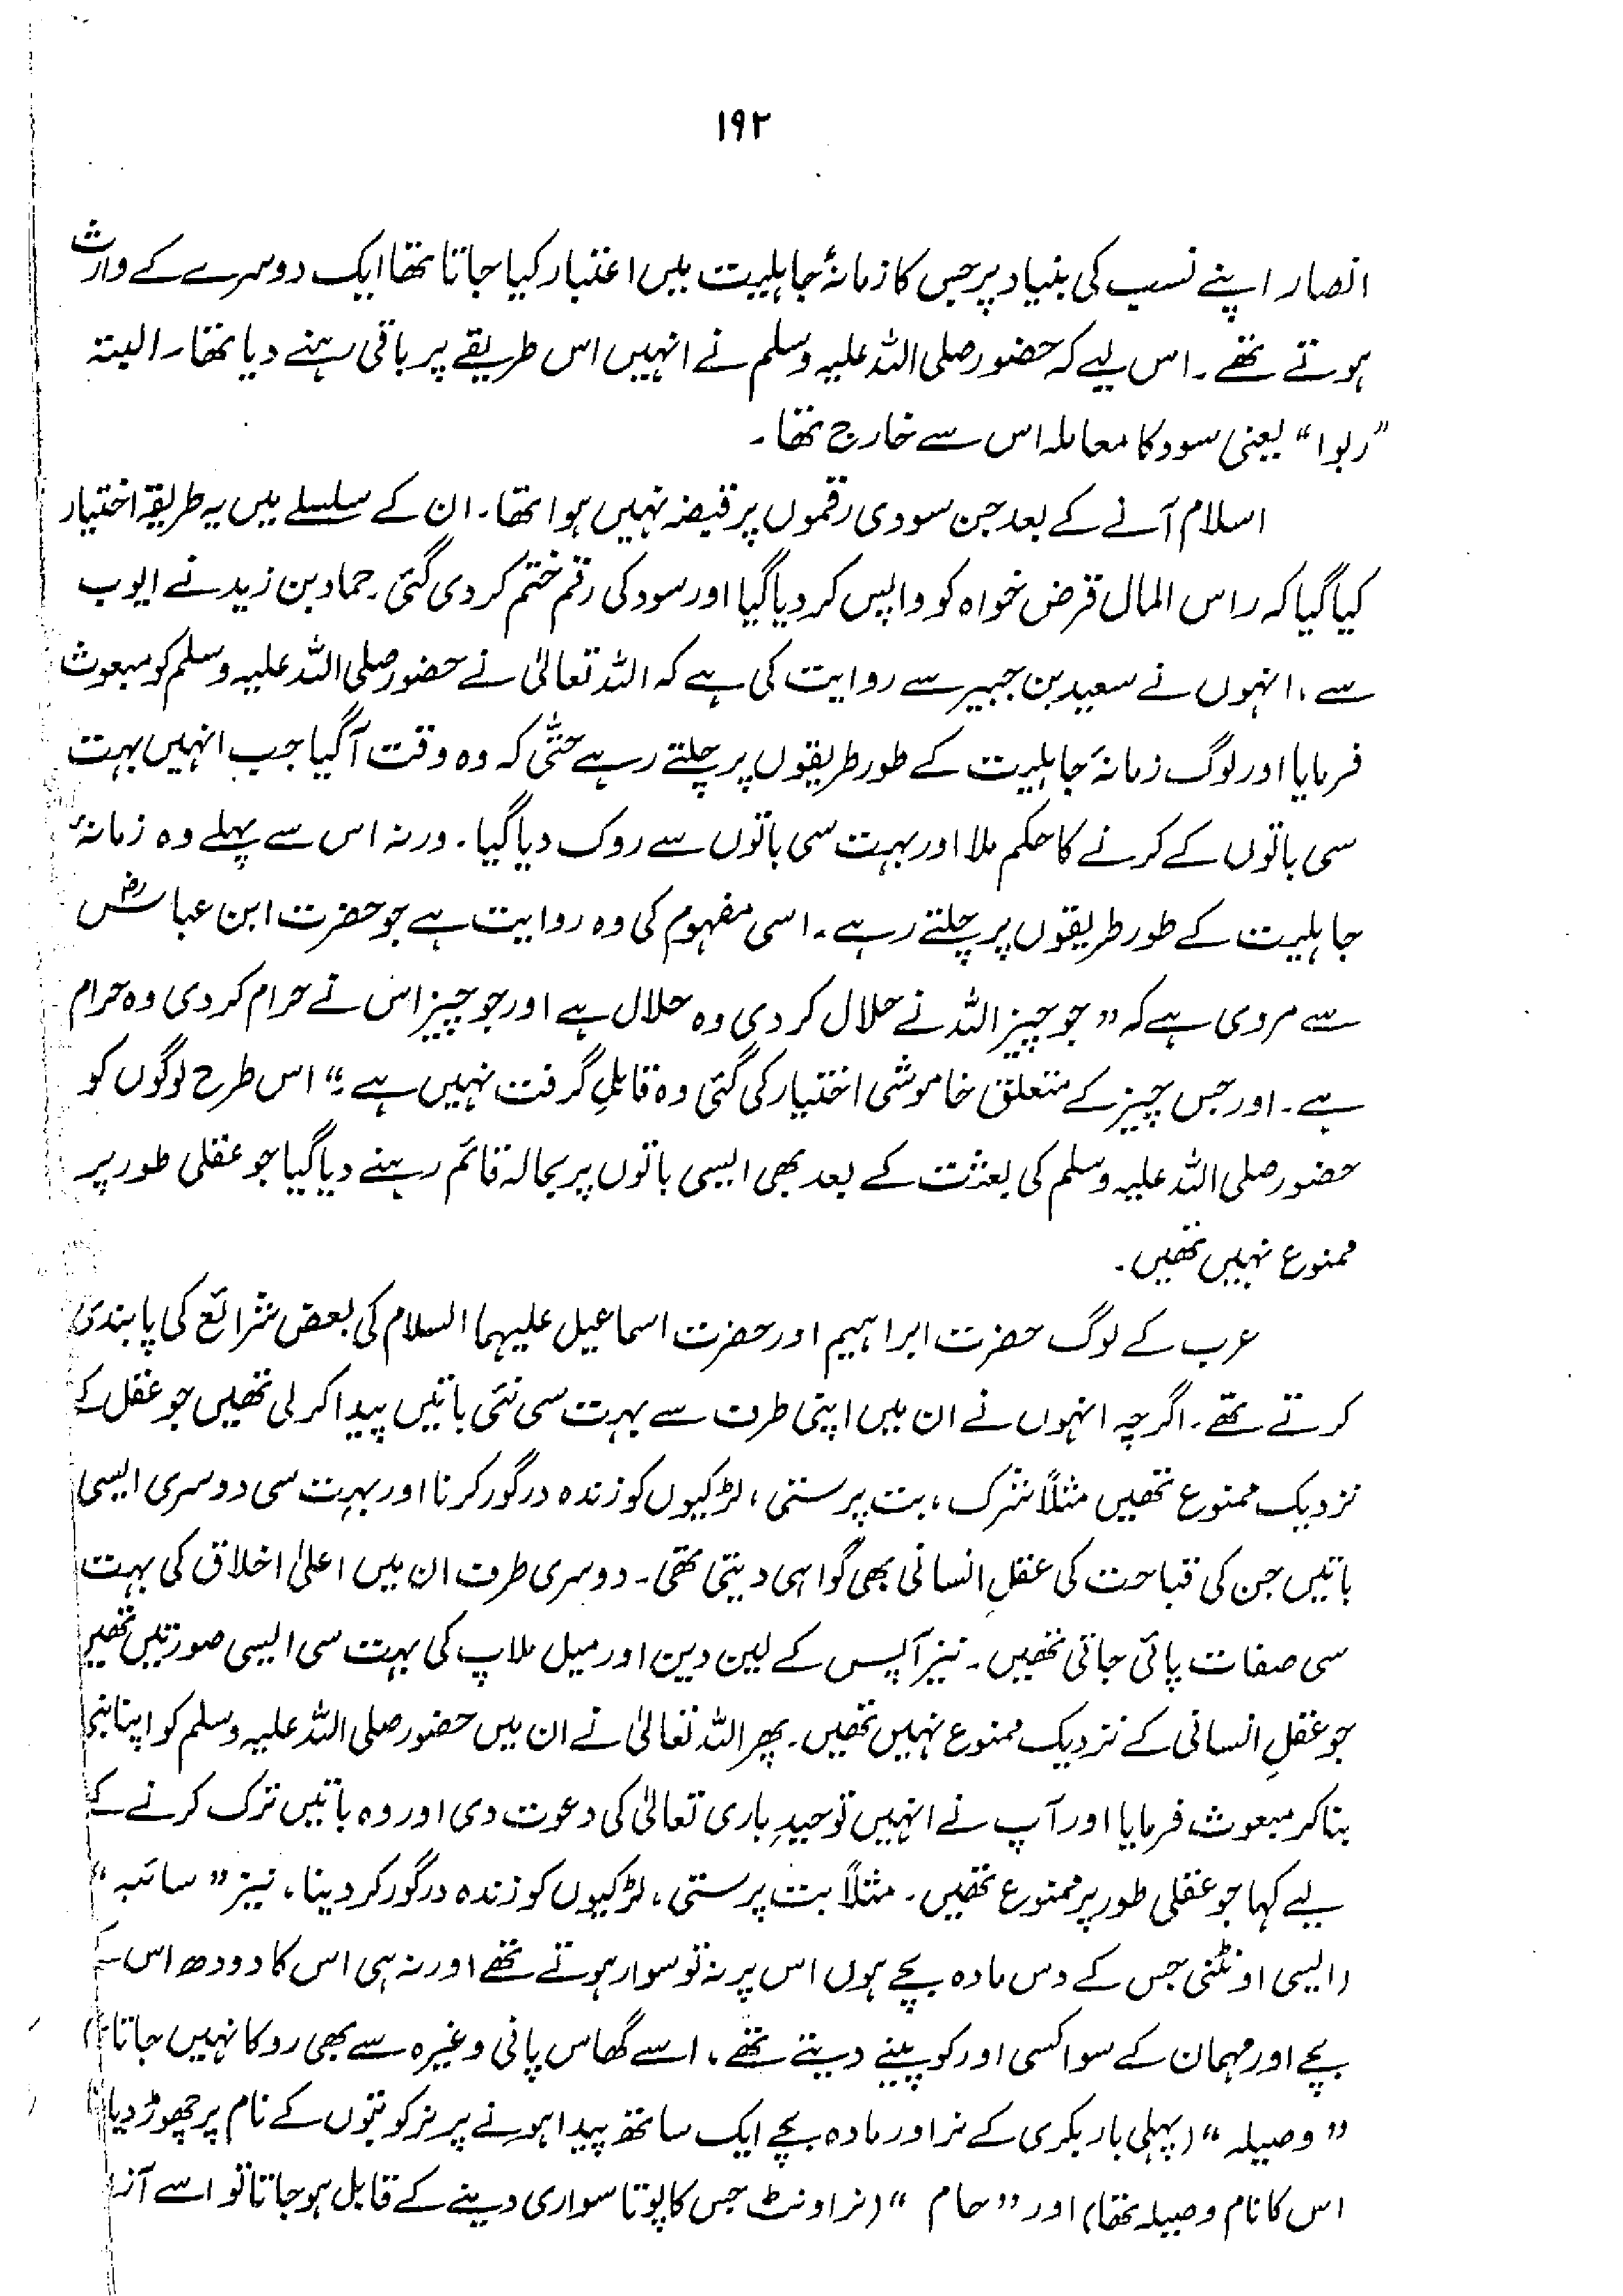 ۱۹۲
انصار اپنے نسب کی بنیاد پر جس کا زمانۂ جاہلیت میں اعتبار کیا جاتا تھا ایک دوسرے کے وارث
ہوتے تھے۔ اس لیے کہ حضور صلی اللہ علیہ وسلم نے انہیں اس طریقے پر باقی رہنے دیا تھا۔ البتہ
"ربوا" یعنی سود کا معاملہ اس سے خارج تھا۔
اسلام آنے کے بعد جن سودی رقموں پر قبضہ نہیں ہوا تھا۔ ان کے سلسلے میں یہ طریقہ اختیار
کیا گیا کہ راس المال قرض خواہ کو واپس کر دیا گیا اور سود کی رقم ختم کر دی گئی۔ حماد بن زید نے ایوب
سے، انہوں نے سعید بن جبیر سے روایت کی ہے کہ اللہ تعالیٰ نے حضور صلی اللہ علیہ وسلم کو مبعوث
فرمایا اور لوگ زمانۂ جاہلیت کے طور طریقوں پر چلتے رہے حتیٰ کہ وہ وقت آگیا جب انہیں بہت
سی باتوں کے کرنے کا حکم ملا اور بہت سی باتوں سے روک دیا گیا۔ ورنہ اس سے پہلے وہ زمانۂ
جاہلیت کے طور طریقوں پر چلتے رہے۔ اسی مفہوم کی وہ روایت ہے جو حضرت ابن عباسؓ
سے مروی ہے کہ "جو چیز اللہ نے حلال کر دی وہ حلال ہے اور جو چیز اس نے حرام کر دی وہ حرام
ہے۔ اور جس چیز کے متعلق خاموشی اختیار کی گئی وہ قابلِ گرفت نہیں ہے؛" اس طرح لوگوں کو
حضور صلی اللہ علیہ وسلم کی بعثت کے بعد بھی ایسی باتوں پر بحالہ قائم رہنے دیا گیا جو عقلی طور پر
ممنوع نہیں تھیں۔
عرب کے لوگ حضرت ابراہیم اور حضرت اسماعیل علیہما السلام کی بعض شرائع کی پابندی
کرتے تھے۔ اگرچہ انہوں نے ان میں اپنی طرف سے بہت سی نئی باتیں پیدا کر لی تھیں جو عقل کے
نزدیک ممنوع تھیں مثلاً شرک، بت پرستی، لڑکیوں کو زندہ درگور کرنا اور بہت سی دوسری ایسی
باتیں جن کی قباحت کی عقلِ انسانی بھی گواہی دیتی تھی۔ دوسری طرف ان میں اعلیٰ اخلاق کی بہت
سی صفات پائی جاتی تھیں۔ نیز آپس کے لین دین اور میل ملاپ کی بہت سی ایسی صورتیں تھیں
جو عقلِ انسانی کے نزدیک ممنوع نہیں تھیں۔ پھر اللہ تعالیٰ نے ان میں حضور صلی اللہ علیہ وسلم کو اپنا نبی
بنا کر مبعوث فرمایا اور آپ نے انہیں توحیدِ باری تعالیٰ کی دعوت دی اور وہ باتیں ترک کرنے کے
لیے کہا جو عقلی طور پر ممنوع تھیں۔ مثلاً بت پرستی، لڑکیوں کو زندہ درگور کر دینا، نیز "سائبہ"
(ایسی اونٹنی جس کے دس مادہ بچے ہوں اس پر نہ تو سوار ہوتے تھے اور نہ ہی اس کا دودھ اس کے
بچے اور مہمان کے سوا کسی اور کو پینے دیتے تھے، اسے گھاس پانی وغیرہ سے بھی روکا نہیں جاتا
"وصیلہ" (پہلی بار بکری کے نر اور مادہ بچے ایک ساتھ پیدا ہونے پر نر کو بتوں کے نام پر چھوڑ دیا
اس کا نام وصیلہ تھا) اور "حام" (نر اونٹ جس کا پوتا سواری دینے کے قابل ہو جاتا تو اسے